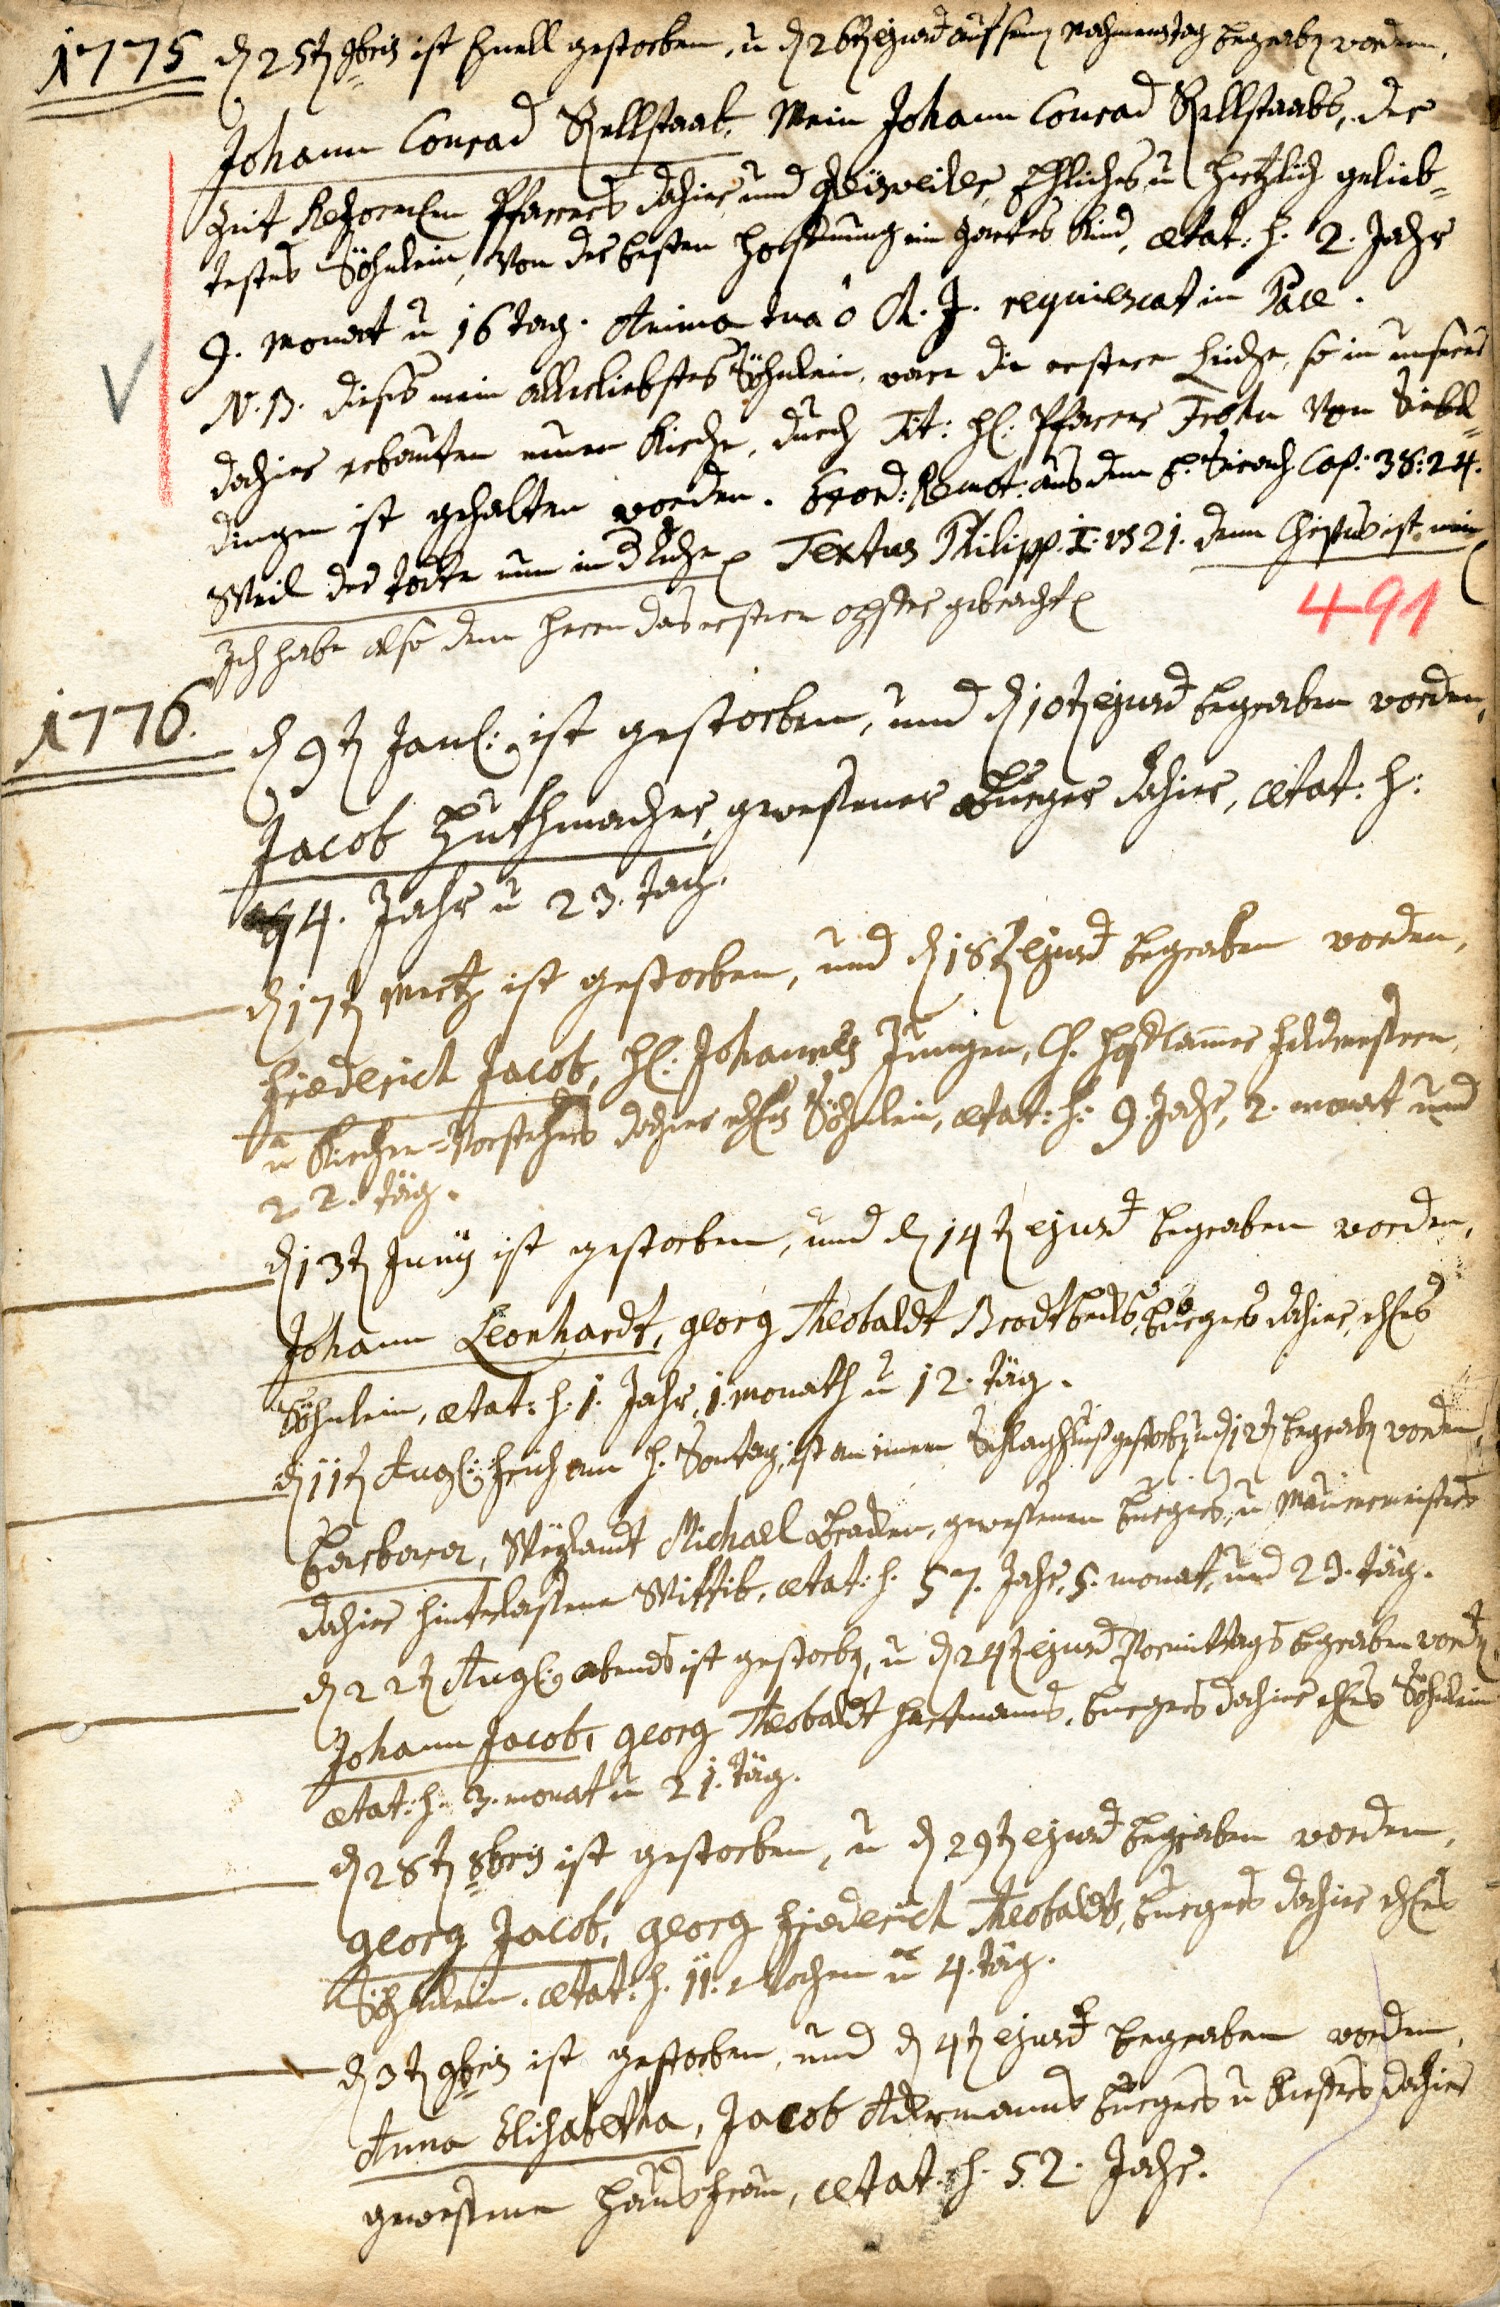 1775 d 25t 9bris ist schnell gestorben, u d 26t ejusd auf seinen Nahmenstag begraben worden,
Johann Conrad Rellstaab. Mein Johann Conrad Rellstaabs, der
Zeit Reformten Pfarrers dahier und, Ehliches u hertzlich gelieb-
testes Söhnlein, Von der besten Hoffnung ein zartes Kind, ætat: s. 2. Jahr
9. Monat u 16 Tag. Anima tua ô A. J. requiescat in Pace.
N.B. dieses mein allerliebstes Söhnlein, ware die erstere Leiche, so in unserer
dahier erbauten neuen Kirche, durch Tit: H: Pfarrer von Siebel-
dingen ist gehalten worden. aus dem B. Sirach Cap: 38:24.
Weil der Todte nun in d Ruhe Textus Philipp. I: vs 21. denn Christus ist mein
Ich habe also dem Herrn das erstere Opfer gebracht
491
1776. d 9t Jan: ist gestorben, und d 10t ejusd begraben worden,
Jacob Huthmacher, gewesener Burger dahier, ætat: s:
74. Jahr u 23. Tag.
d 17t Mertz ist gestorben, und d 18t ejusd begraben worden,
Friederich Jacob, H: Johannes Jungen, Feldmessern,
u Kirchen-Vorstehers dahier ehl Söhnlein, ætat: s: 9 Jahr, 2. monat und
22. täg.
d 13t Junÿ ist gestorben, und d 14t ejusd begraben worden,
Johann Leonhardt, Georg Theobaldt Brodtbecks, Burgers dahier, ehles
Söhnlein, ætat: s. 1. Jahr, 1. monath u 12. täg.
d 11t Aug: frich am H. Sontag, ist an einem Schlagfluß gestorb u d 12t begrab worden,
Barbara, Weÿlandt Michael Braden, gewesenen Burgers, u Maurermeisters
dahier hinterlassene Wittib, ætat: s. 57. Jahr, 5. monat, und 23. täg.
d 22t Aug: abends ist gestorb, u d 24t ejusd Vormittags begraben word
Johann Jacob, Georg Theobaldt Hartmanns, Burgers dahier ehles Söhnlein
ætat: s. 3. monat u 21. täg.
d 28t 8bris ist gestorben, u d 29t ejusd begraben worden,
Georg Jacob, Georg Friederich Theobaldts, Burgers dahier ehles
Söhnlein. ætat: s. 11. Wochen u 4. täg.
d 3t 9bris ist gestorben, und d 4t ejusd begraben worden,
Anna Elisabetha, Jacob Ackermanns Burgers u Kiefers dahier
gewesene Hausfrau, ætat. s. 52. Jahr.